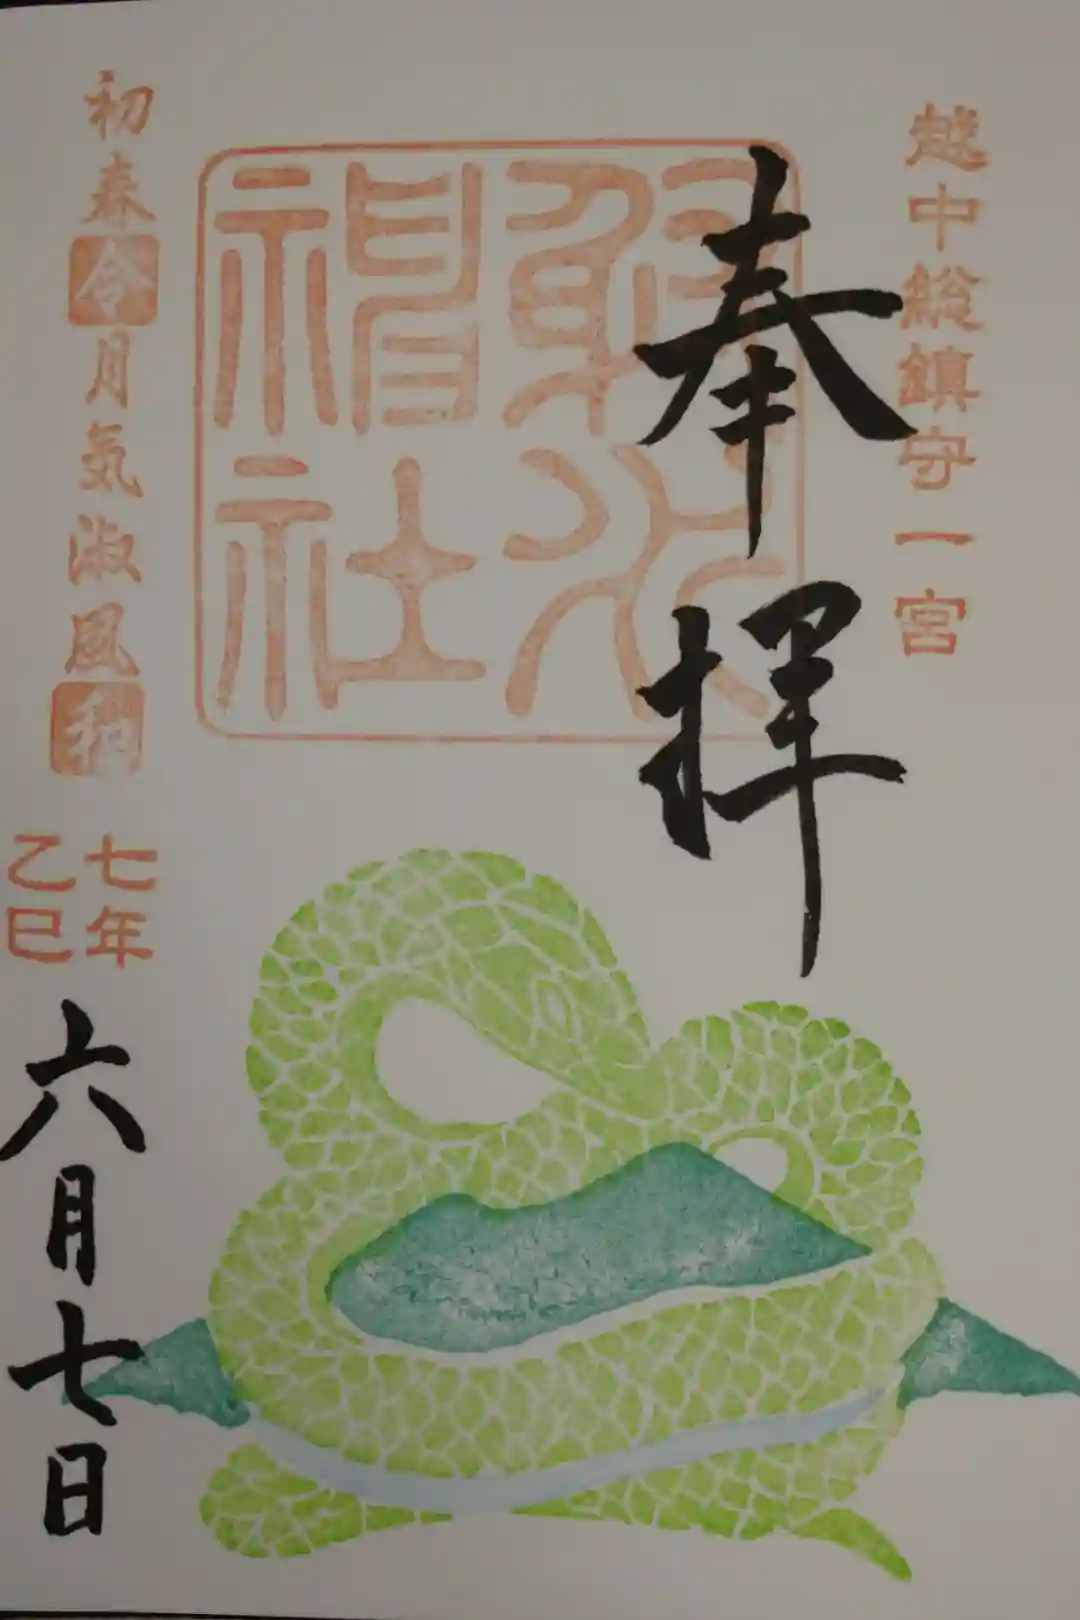 越中総鎮守一宮
奉拝
射水
神社
初春令月気淑風和
七年
乙巳
六月七日